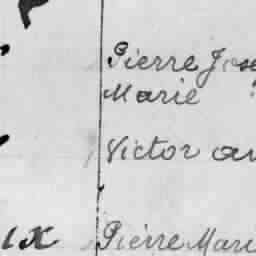 Pierre Jose
Marie
Victor au
ix Pierre Mari